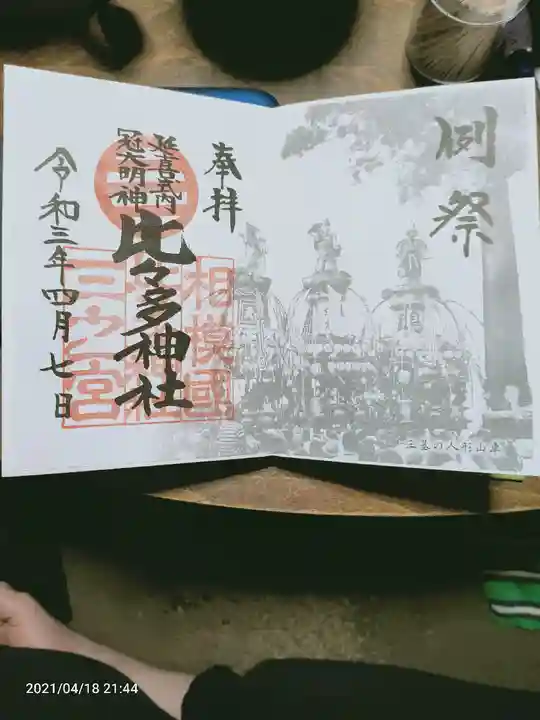 例祭
三基の人形山車
奉拝
延喜式内
冠大明神
比々多神社
相模國
三之宮
令和三年四月七日
2021/04/18 21:44